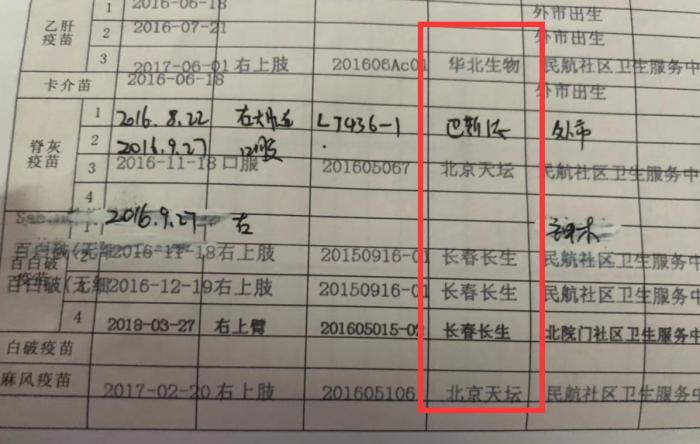 1 2016-06-18 外市出生
乙肝疫苗 2 2016-07-21 外市出生
3 2017-06-01 右上肢 201606Ac01 华北生物 民航社区卫生服务中
卡介苗 2016-06-18 外市出生
1 2016.8.22 L7436-1 巴斯德 外市
脊灰疫苗 2 2016.9.27 口服
3 2016-11-18 口服 201605067 北京天坛 民航社区卫生服务中
4
1 2016.9.27 右
百白破(无细 2 2016-11-18 右上肢 20150916-01 长春长生 民航社区卫生服务中
百白破(无细 2016-12-19 右上肢 20150916-01 长春长生 民航社区卫生服务中
百白破疫苗
4 2018-03-27 右上臂 201605015-02 长春长生 北院门社区卫生服务中
白破疫苗
麻风疫苗 2017-02-20 右上肢 201605106 北京天坛 民航社区卫生服务中